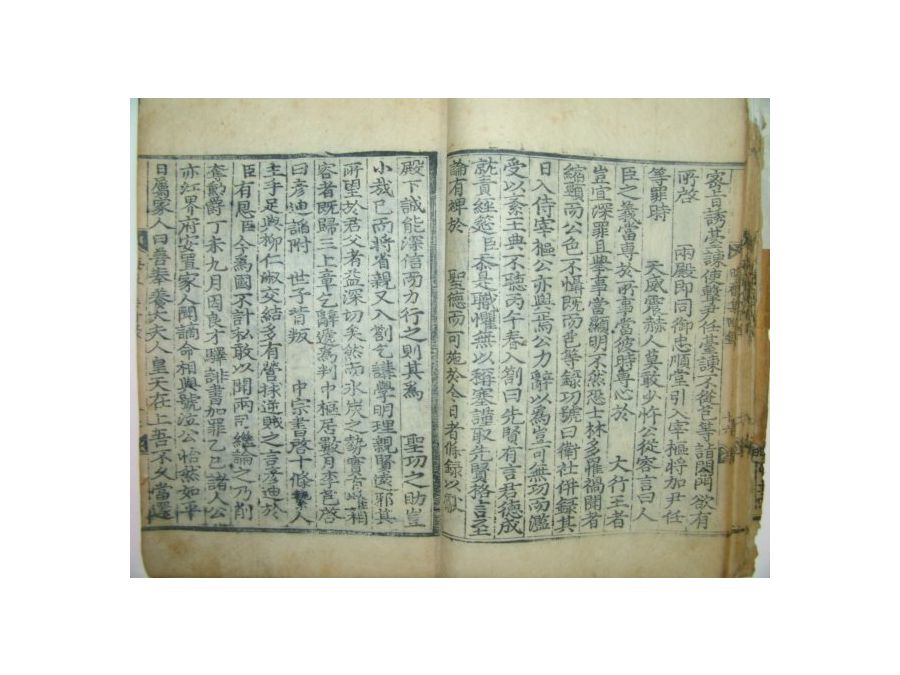 密旨誘臺諫使擊尹任臺諫不從芑等詣閤門欲有
所啓 兩殿即同御忠順堂引入宰樞將加尹任
等罪時 天威震赫人莫敢少忤公從容言曰人
臣之義當專於所事當彼時專心於 大行王者
豈宜深罪且擧事當顯明不然恐士林多罹禍聞者
縮頸而公色不懾既而芑等錄功號曰衛社併錄其
日入侍宰樞公亦與焉公力辭以爲豈可無功而濫
受以紊王典不聽丙午春入劄曰先賢有言君德成
就責經筵臣忝是職懼無以稱塞謹取先賢格言至
論有裨於 聖德而可施於今日者條錄以獻
殿下誠能深信而力行之則其爲 聖功之助豈
小哉已而將省親又入劄乞講學明理親賢遠邪其
所望於君父者益深切矣然而氷炭之勢實有不相
容者既歸三上章乞辭遞爲判中樞居數月李芑啓
曰彦迪諂附 世子背叛 中宗書啓十條繫人
主手足與柳仁淑交結多有營救逆賊之言彦迪於
臣有恩臣今爲國不計私敢以聞兩司繼論之乃削
奪勳爵丁未九月因良才驛誹書加罪乙巳諸人公
亦江界府安置家人聞謫命相與號泣公怡然如平
日屬家人曰善奉養大夫人皇天在上吾不久當還